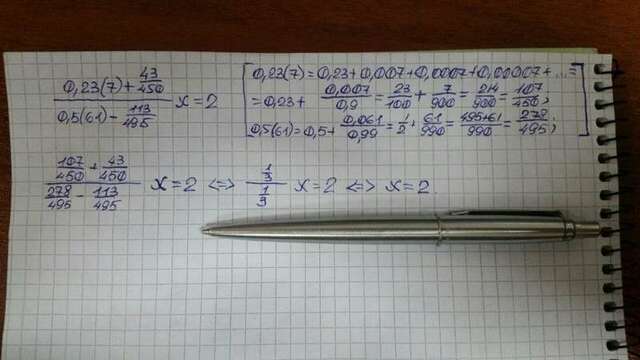 (0,23(7) + 43/450) / (0,5(61) - 113/495) x = 2
[0,23(7) = 0,23 + 0,007 + 0,0007 + 0,00007 + ... =
= 0,23 + 0,007/0,9 = 23/100 + 7/900 = 214/900 = 107/450;
0,5(61) = 0,5 + 0,061/0,99 = 1/2 + 61/990 = 495+61/990 = 278/495;]
(107/450 + 43/450) / (278/495 - 113/495) x = 2 <=> (1/3) / (1/3) x = 2 <=> x = 2.